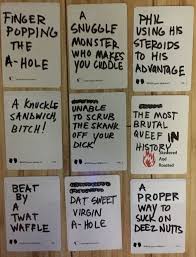 FINGER
POPPING
THE
A-HOLE
A
SNUGGLE
MONSTER
WHO MAKES
YOU CUDDLE
PHIL
USING HIS
STEROIDS
TO HIS
ADVANTAGE
A KNUCKLE
SANDWICH,
BITCH!
UNABLE TO
SCRUB THE
SKANK
OFF YOUR
DICK
THE MOST
BRUTAL
QUEEF IN
HISTORY
And
Roasted
BEAT
BY
A
TWAT
WAFFLE
DAT SWEET
VIRGIN
A-HOLE
A
PROPER
WAY TO
SUCK ON
DEEZ NUTTS